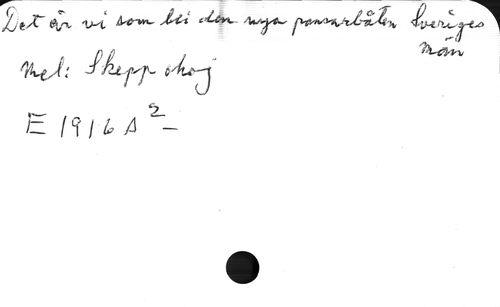 Det är vi som bli den nya pansarbåten Sveriges
män
Mel: Skepp ohoj
E 1916 A 2 –